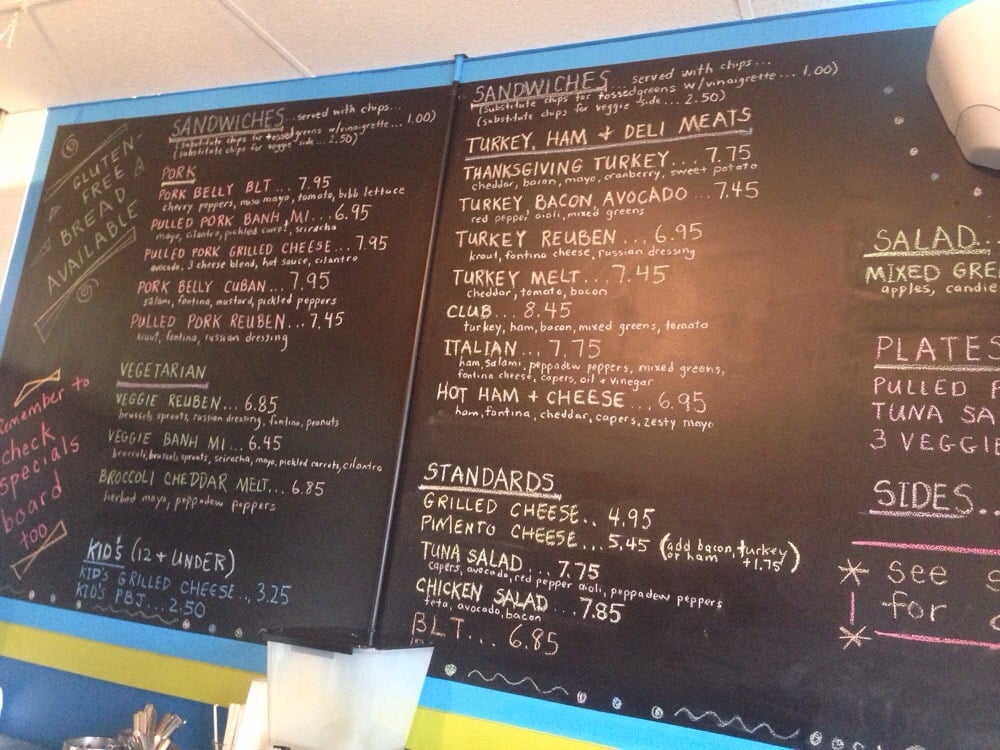 GLUTEN
FREE
BREAD
AVAILABLE
Remember to
check
specials
board
too
SANDWICHES served with chips...
(substitute chips for tossed greens w/vinaigrette... 1.00)
(substitute chips for veggie side... 2.50)
PORK
PORK BELLY BLT... 7.95
cherry peppers, miso mayo, tomato, bibb lettuce
PULLED PORK BANH MI... 6.95
mayo, cilantro, pickled carrot, sriracha
PULLED PORK GRILLED CHEESE... 7.95
avocado, 3 cheese blend, hot sauce, cilantro
PORK BELLY CUBAN... 7.95
salami, fontina, mustard, pickled peppers
PULLED PORK REUBEN... 7.45
kraut, fontina, russian dressing
VEGETARIAN
VEGGIE REUBEN... 6.85
brussels sprouts, russian dressing, fontina, peanuts
VEGGIE BANH MI... 6.45
broccoli, brussels sprouts, sriracha, mayo, pickled carrots, cilantro
BROCCOLI CHEDDAR MELT... 6.85
herbed mayo, peppadew peppers
KID'S (12 + UNDER)
KID'S GRILLED CHEESE... 3.25
KID'S PBJ... 2.50
SANDWICHES served with chips...
(substitute chips for tossed greens w/vinaigrette... 1.00)
(substitute chips for veggie side... 2.50)
TURKEY, HAM + DELI MEATS
THANKSGIVING TURKEY... 7.75
cheddar, bacon, mayo, cranberry, sweet potato
TURKEY BACON AVOCADO... 7.45
red pepper aioli, mixed greens
TURKEY REUBEN... 6.95
kraut, fontina cheese, russian dressing
TURKEY MELT... 7.45
cheddar, tomato, bacon
CLUB... 8.45
turkey, ham, bacon, mixed greens, tomato
ITALIAN... 7.75
ham, salami, peppadew peppers, mixed greens,
fontina cheese, capers, oil + vinegar
HOT HAM + CHEESE... 6.95
ham, fontina, cheddar, capers, zesty mayo
STANDARDS
GRILLED CHEESE.. 4.95
PIMENTO CHEESE... 5.45 (add bacon, turkey
or ham +1.75)
TUNA SALAD... 7.75
capers, avocado, red pepper aioli, peppadew peppers
CHICKEN SALAD... 7.85
feta, avocado, bacon
BLT... 6.85
SALAD..
MIXED GRE
apples, candie
PLATES
PULLED P
TUNA SA
3 VEGGIE
SIDES..
* see s
for
*